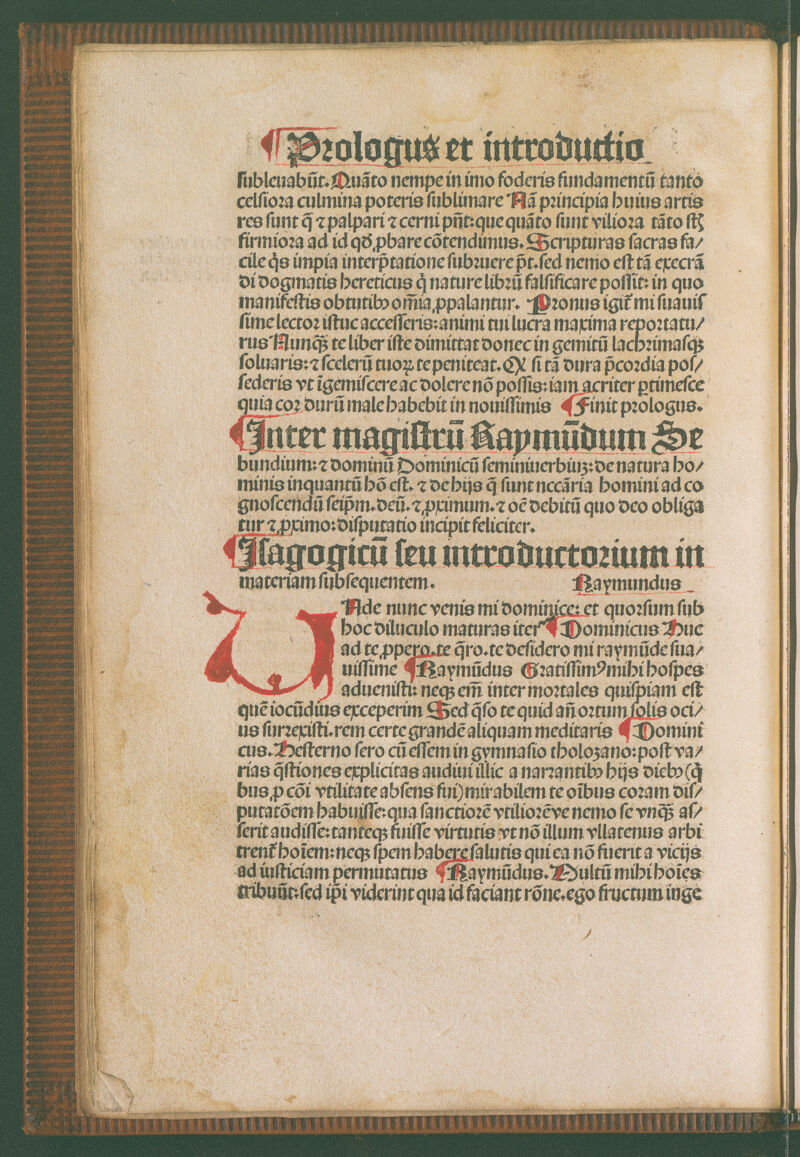 ¶ Prologus et introductio
ſubleuabūt. Quāto nempe in imo foderis fundamentū tanto
celſiora culmina poteris ſublimare Nā principia huius artis
res ſunt q̄ ⁊ palpari ⁊ cerni pn̄t: que quāto ſunt viliora tāto ſꝫ
firmiora ad id qđ ꝓbare cōtendimus. Scripturas ſacras fa⸗
cile q̇s impia interp̄tatione ſubruere p̄t. ſed nemo eſt tā execrā
di dogmatis hereticus q̇ nature librū falſificare poſſit: in quo
manifeſtis obtutibꝫ om̄ia ꝓpalantur. Pronus igit̄ mi ſuauiſ
ſime lector iſtuc acceſſeris: animi tui lucra maxima reportatu⸗
rus Nunqꝫ te liber iſte dimittat donec in gemitū lachrimaſqꝫ
ſoluaris: ⁊ ſcelerū tuoꝝ te peniteat. Qꝫ ſi tā dura p̄cordia poſ⸗
ſederis vt īgemiſcere ac dolere nō poſſis: iam acriter ꝑtimeſce
quia cor durū male habebit in nouiſſimis ¶ Finit prologus.
¶ Inter magiſtrū Raymūdum Se
bundium: ⁊ dominū Dominicū ſeminiuerbiuꝫ: de natura ho⸗
minis inquantū hō eſt. ⁊ de hijs q̄ ſunt nccāria homini ad co
gnoſcendū ſeip̄m. deū. ⁊ ꝓximum. ⁊ oē debitū quo deo obliga
tur ⁊ ꝓximo: diſputatio incipit feliciter.
¶ Iſagogicū ſeu introductorium in
materiam ſubſequentem. Raymundus
UNde nunc venis mi dominice: et quorſum ſub
hoc diluculo maturas iter ¶ Dominicus Huc
ad te ꝓpero. te q̄ro. te deſidero mi raymūde ſua⸗
uiſſime ¶ Raymūdus Gratiſſimꝰ mihi hoſpes
adueniſti: neqꝫ em̄ inter mortales quiſpiam eſt
quē iocūdius exceperim Sed q̄ſo te quid an̄ ortum ſolis oci⸗
us ſurrexiſti. rem certe grandē aliquam meditaris ¶ Domini
cus. Heſterno ſero cū eſſem in gymnaſio tholozano: poſt va⸗
rias q̄ſtiones explicitas audiui illic a narrantibꝫ hijs diebꝫ (q̇
bus ꝓ cōi vtilitate abſens fui) mirabilem te oībus coram diſ⸗
putatōem habuiſſe: qua ſanctiorē vtiliorēve nemo ſe vnqꝫ aſ⸗
ſerit audiſſe: tanteqꝫ fuiſſe virtutis vt nō illum vllatenus arbi
trent̄ hoīem: neqꝫ ſpem habere ſalutis qui ea nō fuerit a vicijs
ad iuſticiam permutatus ¶ Raymūdus. Multū mihi hoīes
tribuūt: ſed ip̄i viderint qua id faciant rōne. ego fructum inge